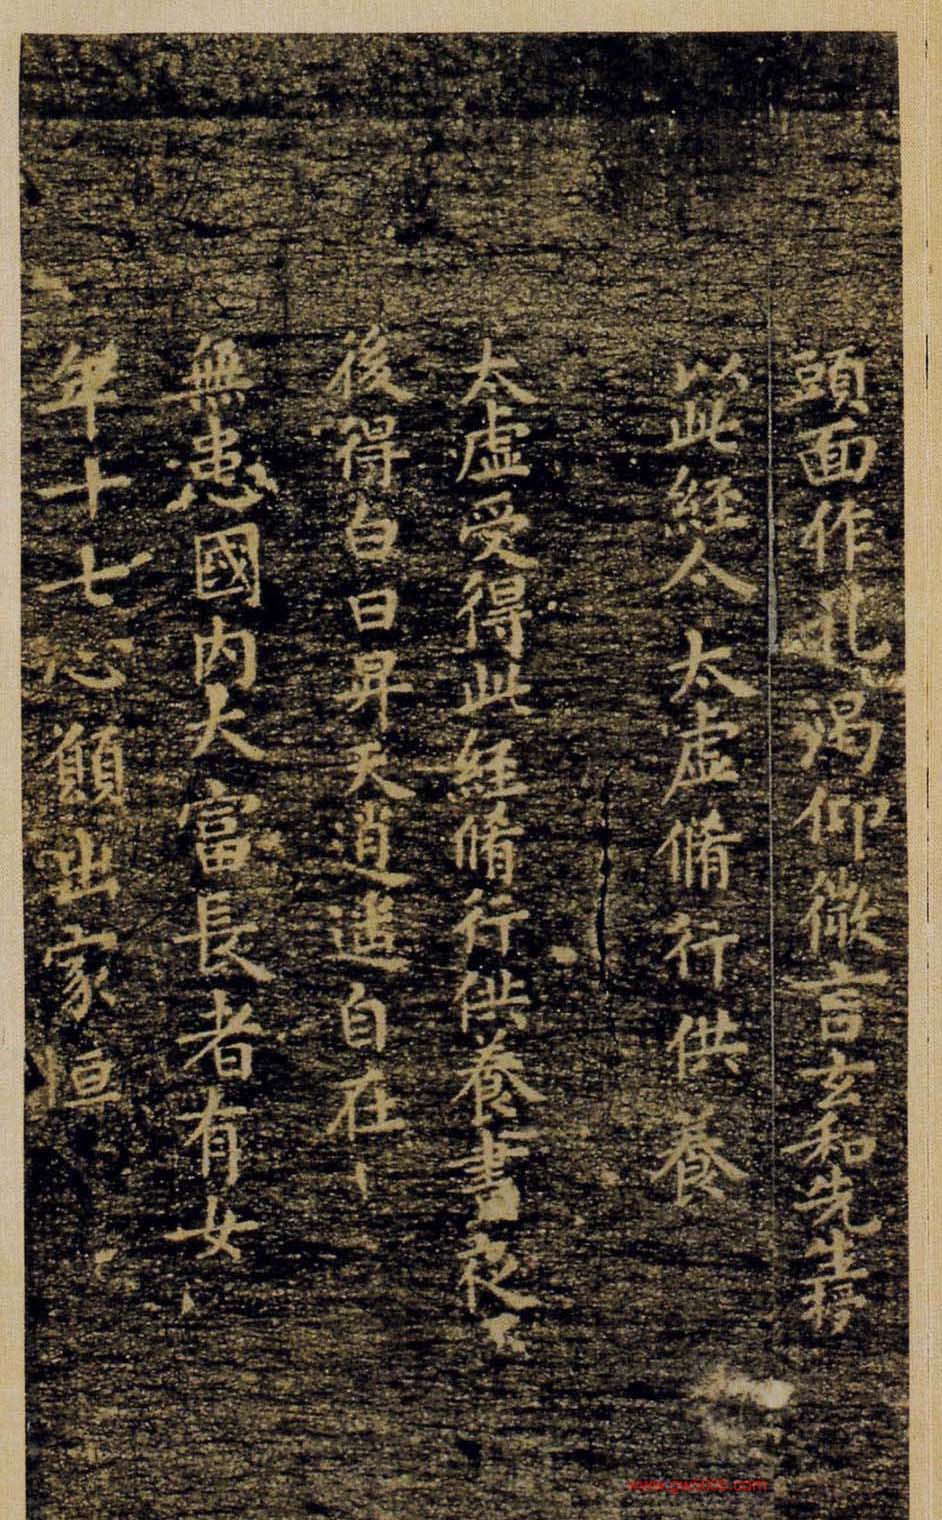 頭面作礼渴仰微言玄和先生將
以此經令太虛脩行供養
太虛受得此經脩行供養晝夜不
後得白日昇天逍遙自在
無患國內大富長者有女
年十七心願出家恒